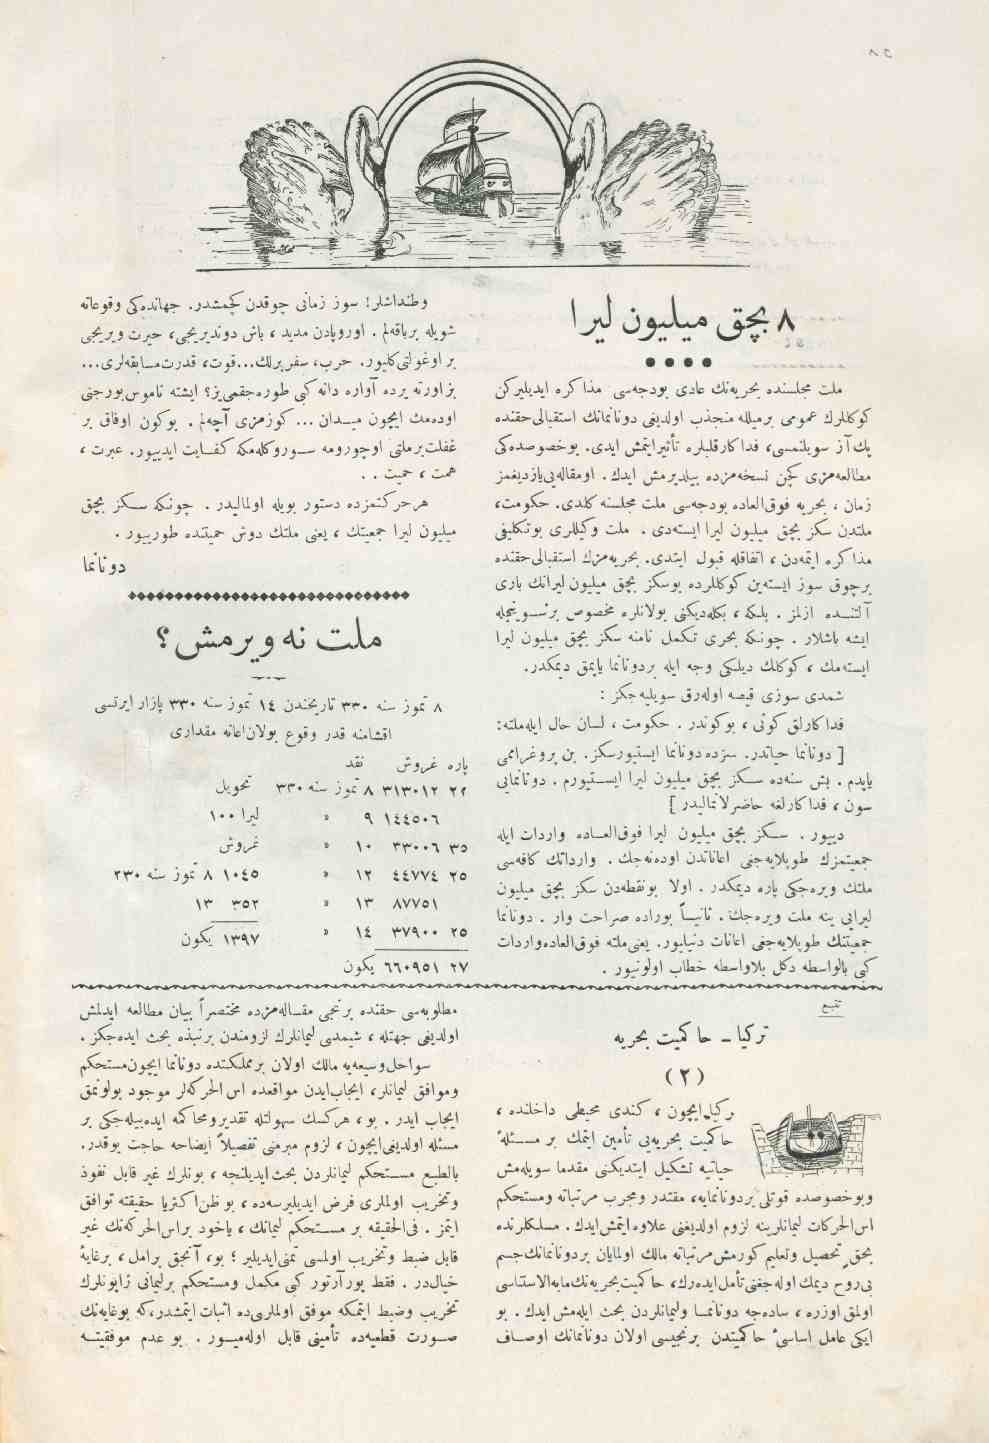 ٨ بچق میلیون لیرا
ملت مجلسنده بحریه‌نك عادی بودجه‌سی مذاكره ایدیلیركن
كوكللرك عمومی برمیلله منجذب اولدیغی دونانمانك استقبالی حقنده
پك آز سویلنمسی، فداكار قلبلره تأثیر ایتمش ایدی. بوخصوصده‌كی
مطالعه‌مزی كچن نسخه‌مزده بیلدیرمش ایدك. اومقاله‌یی یازدیغمز
زمان ، بحریه فوق‌العاده بودجه‌سی ملت مجلسنه كلدی. حكومت،
ملتدن سكز بچق میلیون لیرا ایسته‌دی . ملت وكیللری بوتكلیفی
مذاكره ایتمه‌دن ، اتفاقله قبول ایتدی. بحریه‌مزك استقبالی حقنده
برچوق سوز ایسته‌ین كوكللرده بوسكز بچق میلیون لیرانك باری
آلتنده ازلمز . بلكه ، بكله‌دیكنی بولانلره مخصوص برسوینجله
ایشه باشلار . چونكه بحری تكمل نامنه سكز بچق میلیون لیرا
ایسته‌مك ، كوكلك دیلدیكی وجه ایله بردونانما یاپمق دیمكدر.
شمدی سوزی قیصه اوله‌رق سویلیه‌جكز :
فداكارلق كونی ، بوكوندر . حكومت ، لسان حال ایله‌ملته:
[ دونانما حیاتدر. سزده دونانما ایستیورسكز. بن پروغرامی
یاپدم . بش سنه‌ده سكز بچق میلیون لیرا ایستیورم . دونانمایی
سون ، فداكارلغه حاضرلانمالیدر ]
دییور . سكز بچق میلیون لیرا فوق‌العاده واردات ایله
جمعیتمزك طوپلایه‌جغی اعاناتدن اوده‌نه‌جك . وارداتك كافه‌سی
ملتك ویره‌جكی پاره دیمكدر . اولا بونقطه‌دن سكز بچق میلیون
لیرایی ینه ملت ویره‌جك. ثانیاً بوراده صراحت وار . دونانما
جمعیتنك طوپلایه‌جغی اعانات دنیلیور. یعنی ملته فوق‌العاده واردات
كبی بالواسطه دكل بلاواسطه خطاب اولونیور .
وطنداشلر! سوز زمانی چوقدن كچمشدر. جهانده‌كی وقوعاته
شویله برباقه‌لم . اوروپادن مدید ، باش دوندیریجی، حیرت ویریجی
بر اوغولتی كلیور. حرب، سفربرلك...قوت، قدرت مسابقه‌لری...
بز اورته یرده آواره دانه كبی طوره‌جقمی‌یز؟ ایشته ناموس بورجنی
اوده‌مك ایچون میدان ... كوزمزی آچه‌لم . بوكون اوفاق بر
غفلت برملتی اوچورومه سوروكله‌مكه كفایت ایدییور. عبرت ،
همت ، حمیت . .
هرحركتمزده دستور بویله اولمالیدر . چونكه سكز بچق
میلیون لیرا جمعیتك ، یعنی ملتك دوش حمیتنده طورییور .
دونانما
ملت نه ویرمش؟
٨ تموز سنه ٣٣٠ تاریخندن ١٤ تموز سنه ٣٣٠ پازار ایرتسی
اقشامنه قدر وقوع بولان‌اعانه مقداری
پاره غروش نقد
٢٢ ٣١٣٠١٢ ٨ تموز سنه ٣٣٠
١٤٤٥٠٦ ٩ »
٣٥ ٣٣٠٠٦ ١٠ »
٢٥ ٤٤٧٧٤ ١٢ »
٨٧٧٥١ ١٣ »
٢٥ ٣٧٩٠٠ ١٤ »
٢٧ ٦٦٠٩٥١ یكون
تحویل
لیرا ١٠٠
غروش
١٠٤٥ ٨ تموز سنه ٣٣٠
٣٥٢ ١٣
١٣٩٧ یكون
تتبع
تركیا - حاكمیت بحریه
(٢)
تركیا ایچون ، كندی محیطی داخلنده ،
حاكمیت بحریه‌یی تأمین ایتمك بر مسئلهٔ
حیاتیه تشكیل ایتدیكنی مقدما سویله‌مش
وبوخصوصده قوتلی بردونانمایه، مقتدر ومجرب مرتباته ومستحكم
اس‌الحركات لیمانلرینه لزوم اولدیغنی علاوه ایتمش‌ایدك. مسلكلرنده
بحق تحصیل وتعلیم كورمش مرتباته مالك اولمایان بردونانمانك جسم
بی‌روح دیمك اوله‌جغنی تأمل ایده‌رك، حاكمیت بحریه‌نك مابه‌الاستناسی
اولمق اوزره ، ساده‌جه دونانما ولیمانلردن بحث ایله‌مش ایدك. بو
ایكی عامل اساسیٔ حاكمیتدن برنجیسی اولان دونانمانك اوصاف
مطلوبه‌سی حقنده برنجی مقاله‌مزده مختصراً بیان مطالعه ایدلمش
اولدیغی جهتله ، شیمدی لیمانلرك لزومندن برنبذه بحث ایده‌جكز .
سواحل وسیعه‌یه مالك اولان برمملكتده دونانما ایچون مستحكم
وموافق لیمانلر، ایجاب‌ایدن مواقعده اس الحركه‌لر موجود بولونمق
ایجاب ایدر . بو، هركسك سهولتله تقدیر ومحاكمه ایده‌بیله‌جكی بر
مسئله اولدیغی ایچون ، لزوم مبرمنی تفصیلاً ایضاحه حاجت یوقدر.
بالطبع مستحكم لیمانلردن بحث ایدیلنجه ، بونلرك غیر قابل نفوذ
وتخریب اولملری فرض ایدیلیرسه‌ده ، بو ظن اكثریا حقیقته توافق
ایتمز . فی‌الحقیقه بر مستحكم لیمانك ، یاخود براس‌الحركه‌نك غیر
قابل ضبط وتخریب اولمسی تمنی ایدیلیر ؛ بو، آنجق برامل ، برغایهٔ
خیالدر . فقط پورآرتور كبی مكمل ومستحكم برلیمانی ژاپونلرك
تخریب وضبط ایتمكه موفق اولملری‌ده اثبات ایتمشدر،كه بوغایه‌نك
صورت قطعیه‌ده تأمینی قابل اوله‌میور . بو عدم موفقیته